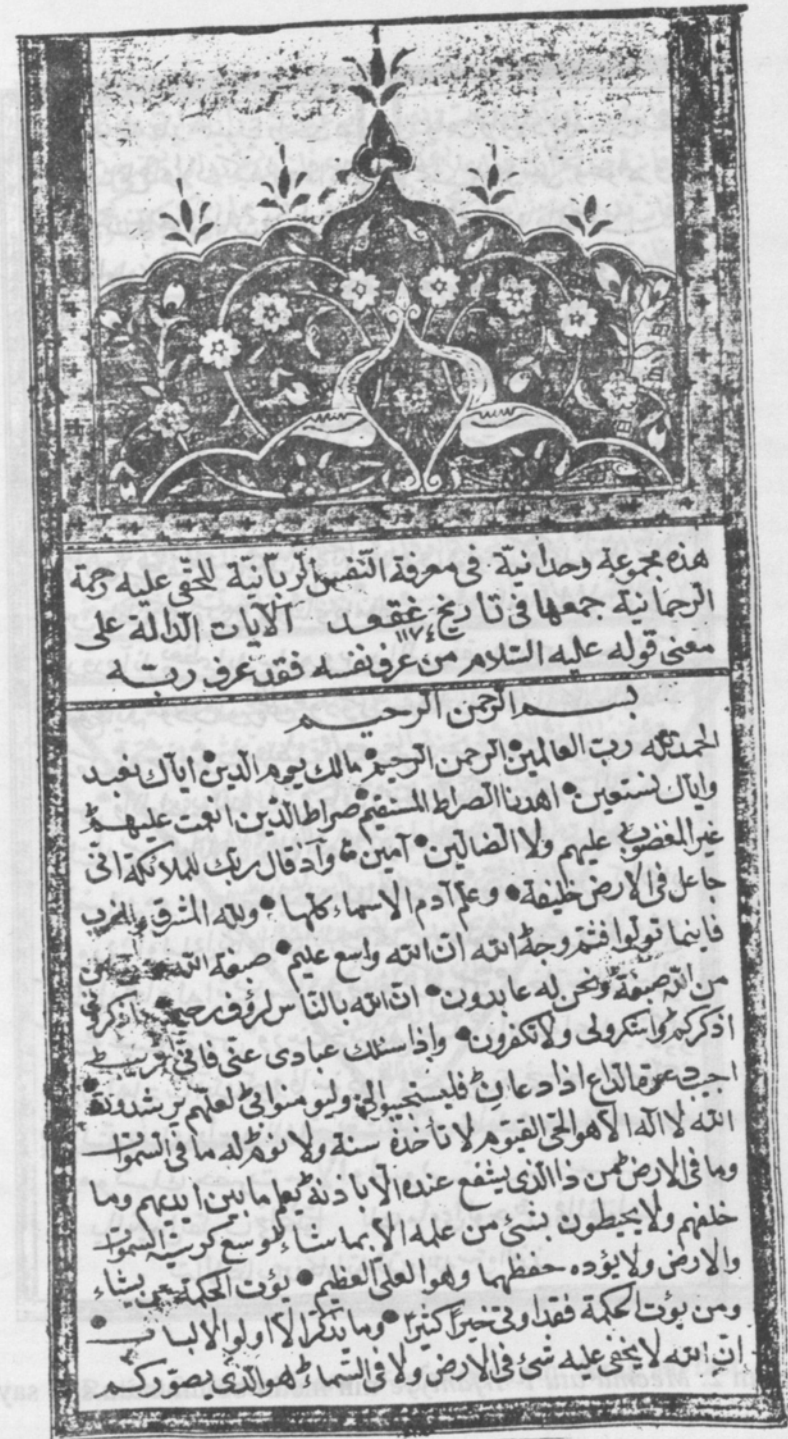 هذه مجموعة وحدانية فى معرفة النفس الربانية للحقى عليه رحمة
الرحمانية جمعها فى تاريخ غقعد الآيات الدالة على
١١٧٤
معنى قوله عليه السلام من عرف نفسه فقد عرف ربه
بسم الرحمن الرحيم
الحمد لله رب العالمين الرحمن الرحيم مالك يوم الدين اياك نعبد
واياك نستعين اهدنا الصراط المستقيم صراط الذين انعمت عليهم
غير المغضوب عليهم ولا الضالين آمين واذ قال ربك للملائكة انى
جاعل فى الارض خليفة وعلم آدم الاسماء كلها ولله المشرق والمغرب
فاينما تولوا فثم وجه الله ان الله واسع عليم صبغة الله
من الله صبغة ونحن له عابدون ان الله بالناس لرؤف رحيم فاذكرونى
اذكركم واشكرولى ولا تكفرون واذا سئلك عبادى عنى فانى قريب
اجيب دعوة الداع اذا دعان فليستجيبوا لى وليؤمنوا بى لعلهم يرشدون
الله لا اله الا هو الحى القيوم لا تأخذه سنة ولا نوم له ما فى السموات
وما فى الارض من ذا الذى يشفع عنده الا باذنه يعلم ما بين ايديهم وما
خلفهم ولا يحيطون بشئ من علمه الا بما شاء وسع كرسيه السموات
والارض ولا يؤده حفظهما وهو العلى العظيم يؤت الحكمة من يشاء
ومن يؤت الحكمة فقد اوتى خيرا كثيرا وما يذكر الا اولوا الالباب
ان الله لا يخفى عليه شئ فى الارض ولا فى السماء هو الذى يصوركم